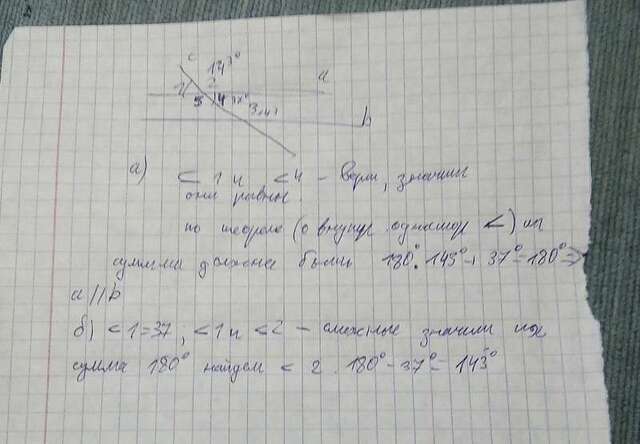 c
143°
a
1 2
3 4 37°
b
а) < 1 и < 4 - верт, значит
они равны.
по теореме (о внутр. одностор <) их
сумма должна быть 180° 143° + 37° = 180° =>
a // b
б) < 1 = 37, < 1 и < 2 - смежные значит их
сумма 180° найдем < 2. 180° - 37° = 143°